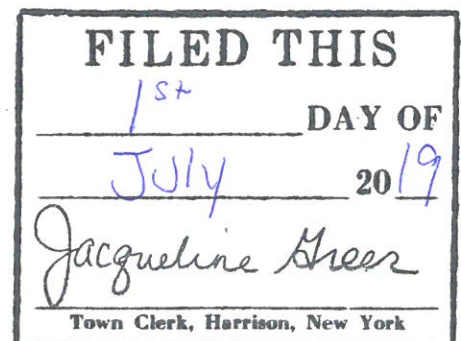 FILED THIS
1st DAY OF
July 2019
Jacqueline Greer
Town Clerk, Harrison, New York